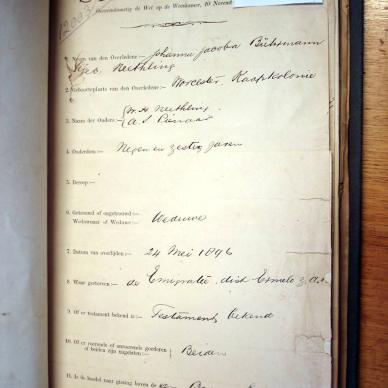 12003
Overeenkomstig de Wet op de Weeskamer, 10 Novemb
1. Naam van den Overledene:— Johanna Jacoba Bührmann
geb. Neethling
2. Geboorteplaats van den Overledene:— Worcester, Kaapkolonie
3. Namen der Ouders:— W. H. Neethling
A. S. Pienaar
4. Ouderdom:— Negen en zestig jaren
5. Beroep:—
6. Getrouwd of ongetrouwd:—
Weduwnaar of Weduwe:— Weduwe
7. Datum van overlijden:— 24 Mei 1896
8. Waar gestorven:— de Emigratie, dist Ermelo Z.A.R.
9. Of er testament bekend is:— Testament bekend
10. Of er roerende of onroerende goederen
of beiden zijn nagelaten:— Beiden
11. Is de boedel naar gissing boven de